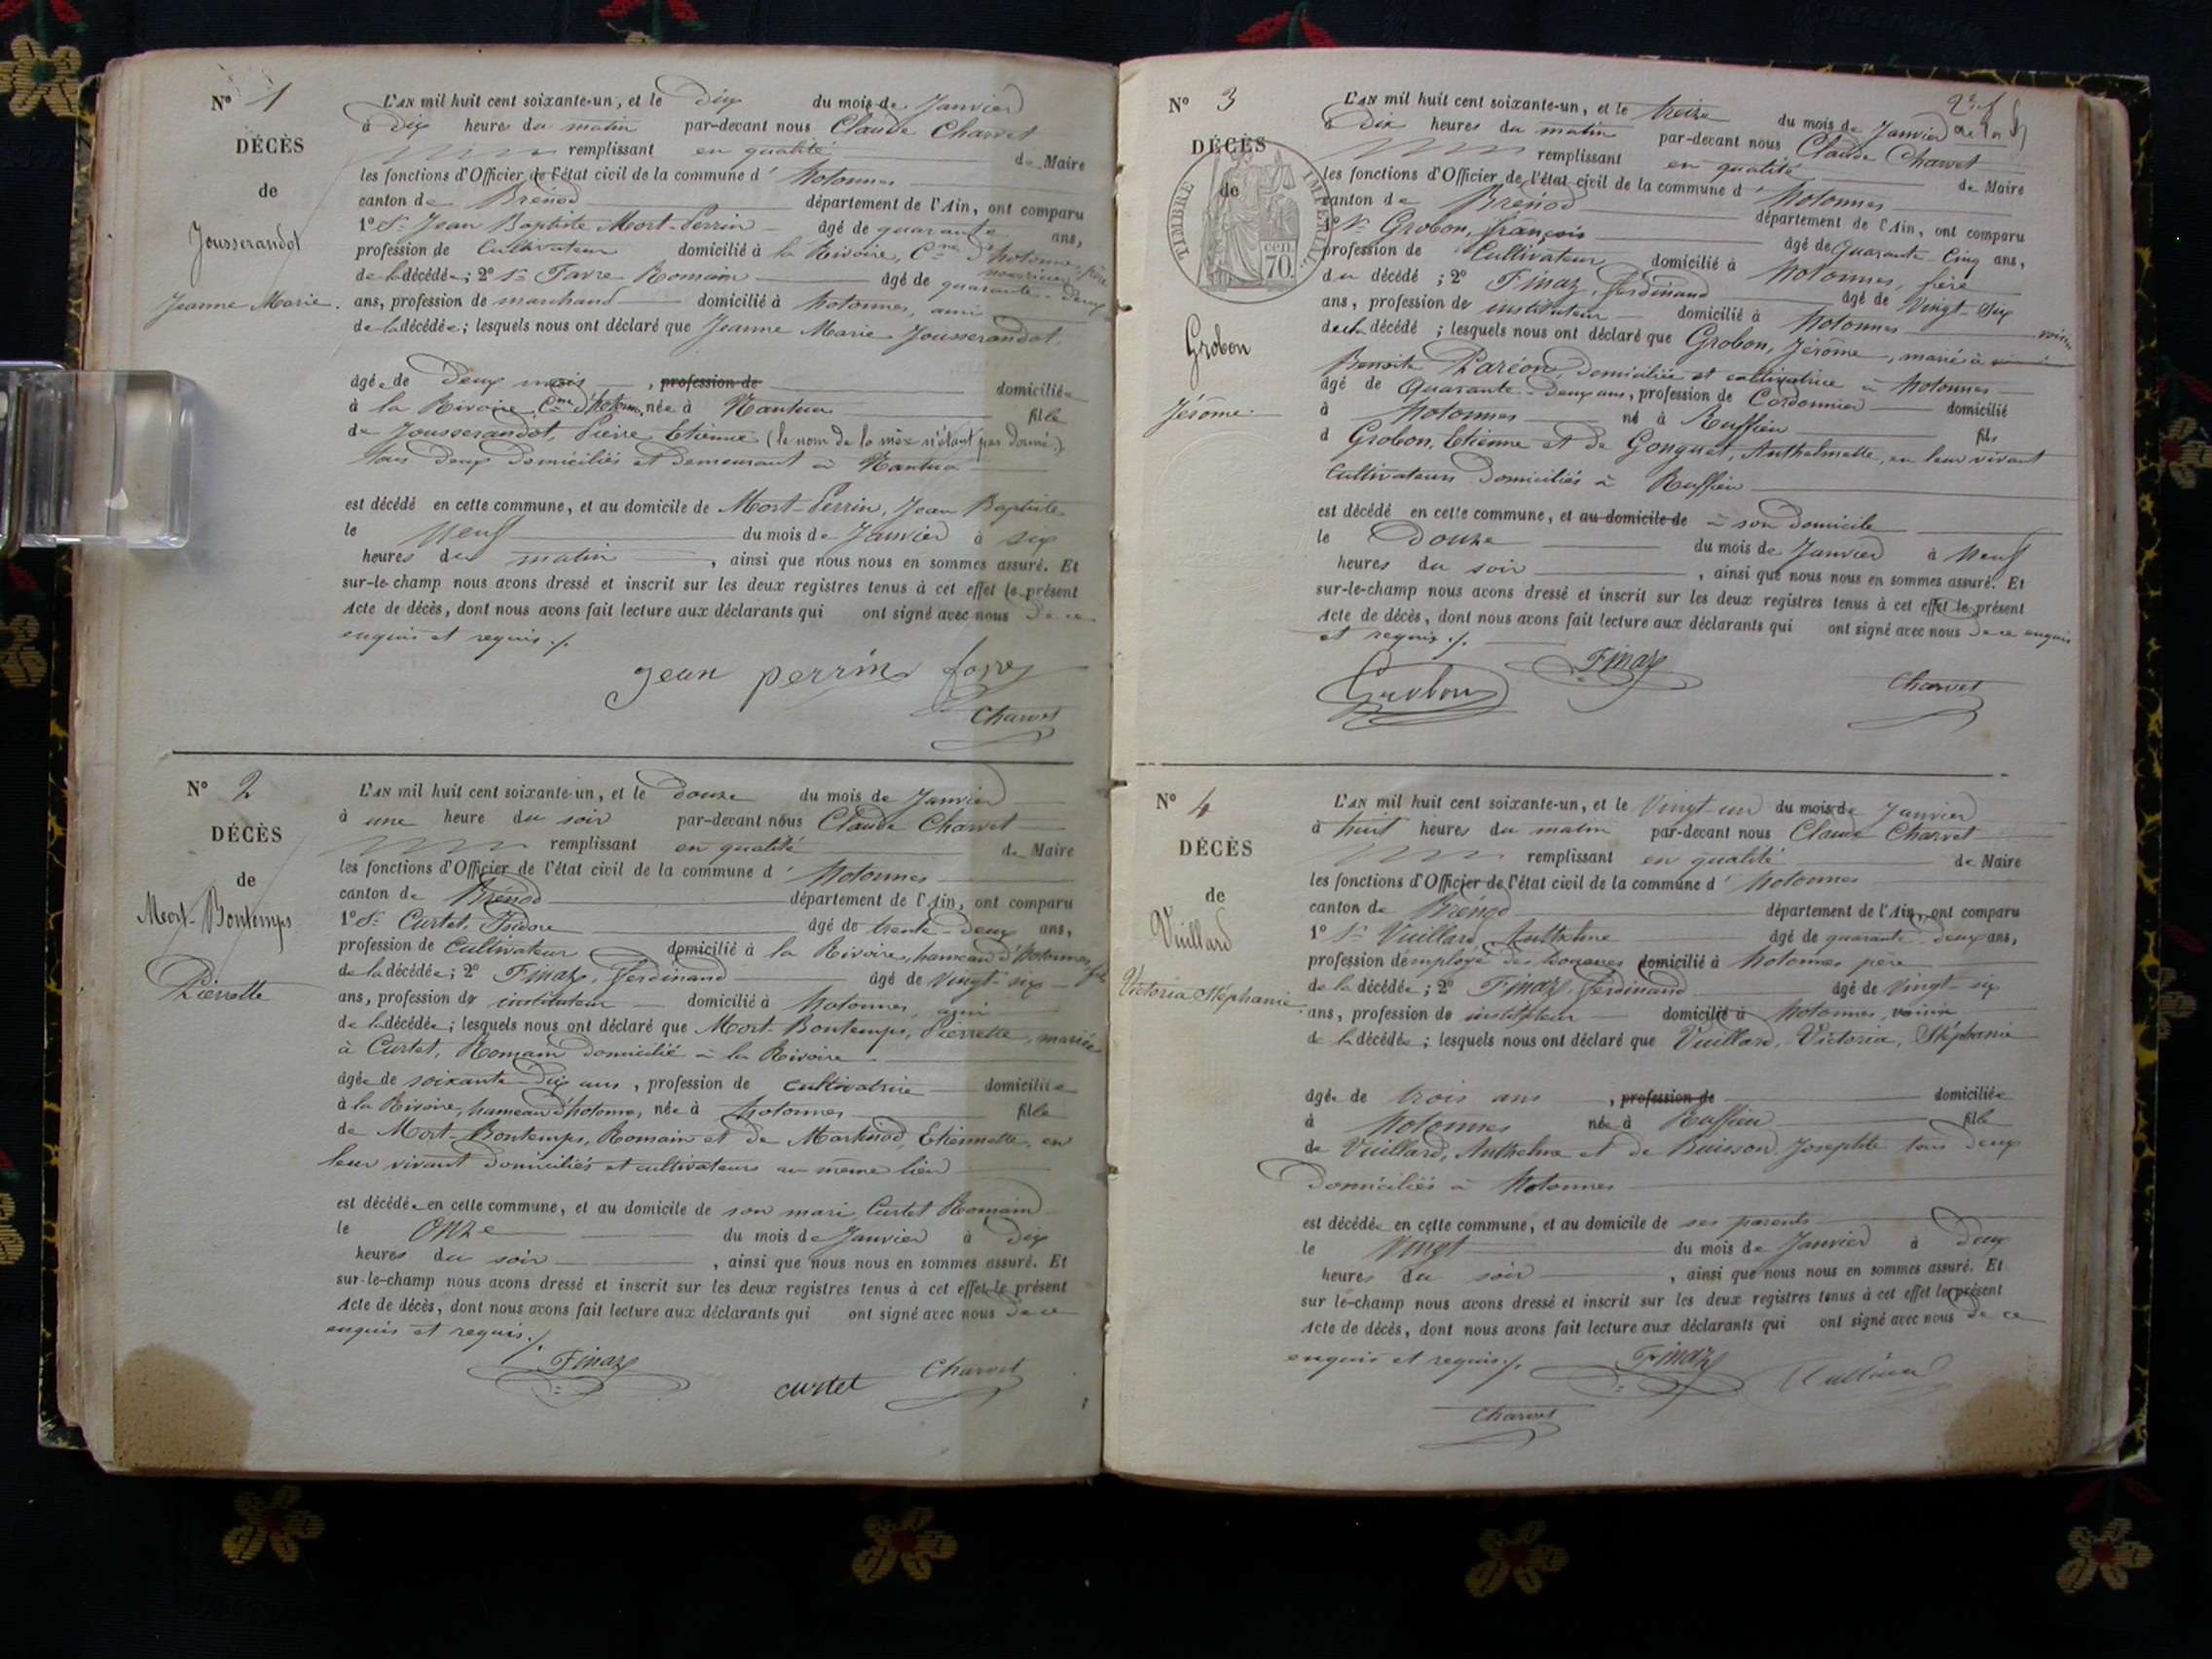 N° 1
DÉCÈS
de
Jousserandot
Jeanne Marie.
L'AN mil huit cent soixante-un, et le dix du mois de Janvier
à dix heures du matin par-devant nous Claude Charvet
remplissant en qualité de Maire
les fonctions d'Officier de l'état civil de la commune d' hotonnes
canton de Brénod département de l'Ain, ont comparu
1° Sr Jean Baptiste Mort-Perrin âgé de quarante ans,
profession de Cultivateur domicilié à la Rivoire, Cne d'hotonnes, père nourricier
de la décédée; 2° Sr Favre Romain âgé de quarante-deux
ans, profession de marchand domicilié à hotonnes, ami
de la décédée; lesquels nous ont déclaré que Jeanne Marie Jousserandot.
âgée de deux mois, profession de domiciliée
à la Rivoire, Cne d'hotonnes, née à Nantua fille
de Jousserandot, Pierre Etienne (le nom de la mère n'étant pas donné.)
tous deux domiciliés et demeurant à Nantua
est décédé en cette commune, et au domicile de Mort-Perrin, Jean Baptiste
le neuf du mois de Janvier à six
heures du matin, ainsi que nous nous en sommes assuré. Et
sur-le-champ nous avons dressé et inscrit sur les deux registres tenus à cet effet le présent
Acte de décès, dont nous avons fait lecture aux déclarants qui ont signé avec nous de ce
enquis et requis ./.
Jean perrin favre
Charvet
N° 2
DÉCÈS
de
Mort-Bontemps
Pierrette
L'AN mil huit cent soixante-un, et le douze du mois de Janvier
à une heure du soir par-devant nous Claude Charvet
remplissant en qualité de Maire
les fonctions d'Officier de l'état civil de la commune d' hotonnes
canton de Brénod département de l'Ain, ont comparu
1° Sr Curtet, Isidore âgé de trente-deux ans,
profession de Cultivateur domicilié à la Rivoire, hameau d'hotonnes, fils
de la décédée; 2° Finaz, Ferdinand âgé de vingt-six
ans, profession de instituteur domicilié à hotonnes, ami
de la décédée; lesquels nous ont déclaré que Mort-Bontemps, Pierrette, mariée
à Curtet, Romain domicilié à la Rivoire
âgée de soixante-dix ans, profession de cultivatrice domiciliée
à la Rivoire, hameau d'hotonnes, née à hotonnes fille
de Mort-Bontemps, Romain et de Martinod, Etiennette, en
leur vivant domiciliés et cultivateurs au même lieu
est décédée en cette commune, et au domicile de son mari, Curtet Romain
le onze du mois de Janvier à dix
heures du soir, ainsi que nous nous en sommes assuré. Et
sur-le-champ nous avons dressé et inscrit sur les deux registres tenus à cet effet le présent
Acte de décès, dont nous avons fait lecture aux déclarants qui ont signé avec nous de ce
enquis et requis ./.
Finaz curtet Charvet
N° 3
DÉCÈS
de
TIMBRE IMPÉRIAL
70 cen.
Grobon
Jérôme.
L'AN mil huit cent soixante-un, et le treize du mois de Janvier
à dix heures du matin par-devant nous Claude Charvet
remplissant en qualité de Maire
les fonctions d'Officier de l'état civil de la commune d' hotonnes
canton de Brénod département de l'Ain, ont comparu
1° Sr Grobon, François âgé de quarante-cinq ans,
profession de Cultivateur domicilié à hotonnes, frère
du décédé; 2° Finaz, Ferdinand âgé de vingt-six
ans, profession de instituteur domicilié à hotonnes voisin
du décédé; lesquels nous ont déclaré que Grobon, Jérôme, marié à
Benoite Paréon, domiciliée et cultivatrice à hotonnes
âgé de quarante-deux ans, profession de Cordonnier domicilié
à hotonnes né à Ruffieu fils
d Grobon, Etienne et de Gonguet, Anthelmette, en leur vivant
Cultivateurs domiciliés à Ruffieu
est décédé en cette commune, et au domicile de à son domicile
le douze du mois de Janvier à neuf
heures du soir, ainsi que nous nous en sommes assuré. Et
sur-le-champ nous avons dressé et inscrit sur les deux registres tenus à cet effet le présent
Acte de décès, dont nous avons fait lecture aux déclarants qui ont signé avec nous de ce enquis
et requis ./.
Grobon Finaz Charvet
N° 4
DÉCÈS
de
Vuillard
Victoria Stéphanie
L'AN mil huit cent soixante-un, et le vingt-un du mois de Janvier
à huit heures du matin par-devant nous Claude Charvet
remplissant en qualité de Maire
les fonctions d'Officier de l'état civil de la commune d' hotonnes
canton de Brénod département de l'Ain, ont comparu
1° Sr Vuillard, Anthelme âgé de quarante-deux ans,
profession d'employé des douanes domicilié à hotonnes père
de la décédée; 2° Finaz, Ferdinand âgé de vingt-six
ans, profession de instituteur domicilié à hotonnes, voisin
de la décédée; lesquels nous ont déclaré que Vuillard, Victoria, Stéphanie
âgée de trois ans, profession de domiciliée
à hotonnes née à Ruffieu fille
de Vuillard, Anthelme et de Buisson, Josephte tous deux
domiciliés à hotonnes
est décédée en cette commune, et au domicile de ses parents
le vingt du mois de Janvier à deux
heures du soir, ainsi que nous nous en sommes assuré. Et
sur-le-champ nous avons dressé et inscrit sur les deux registres tenus à cet effet le présent
Acte de décès, dont nous avons fait lecture aux déclarants qui ont signé avec nous de ce
enquis et requis ./. Finaz
Charvet